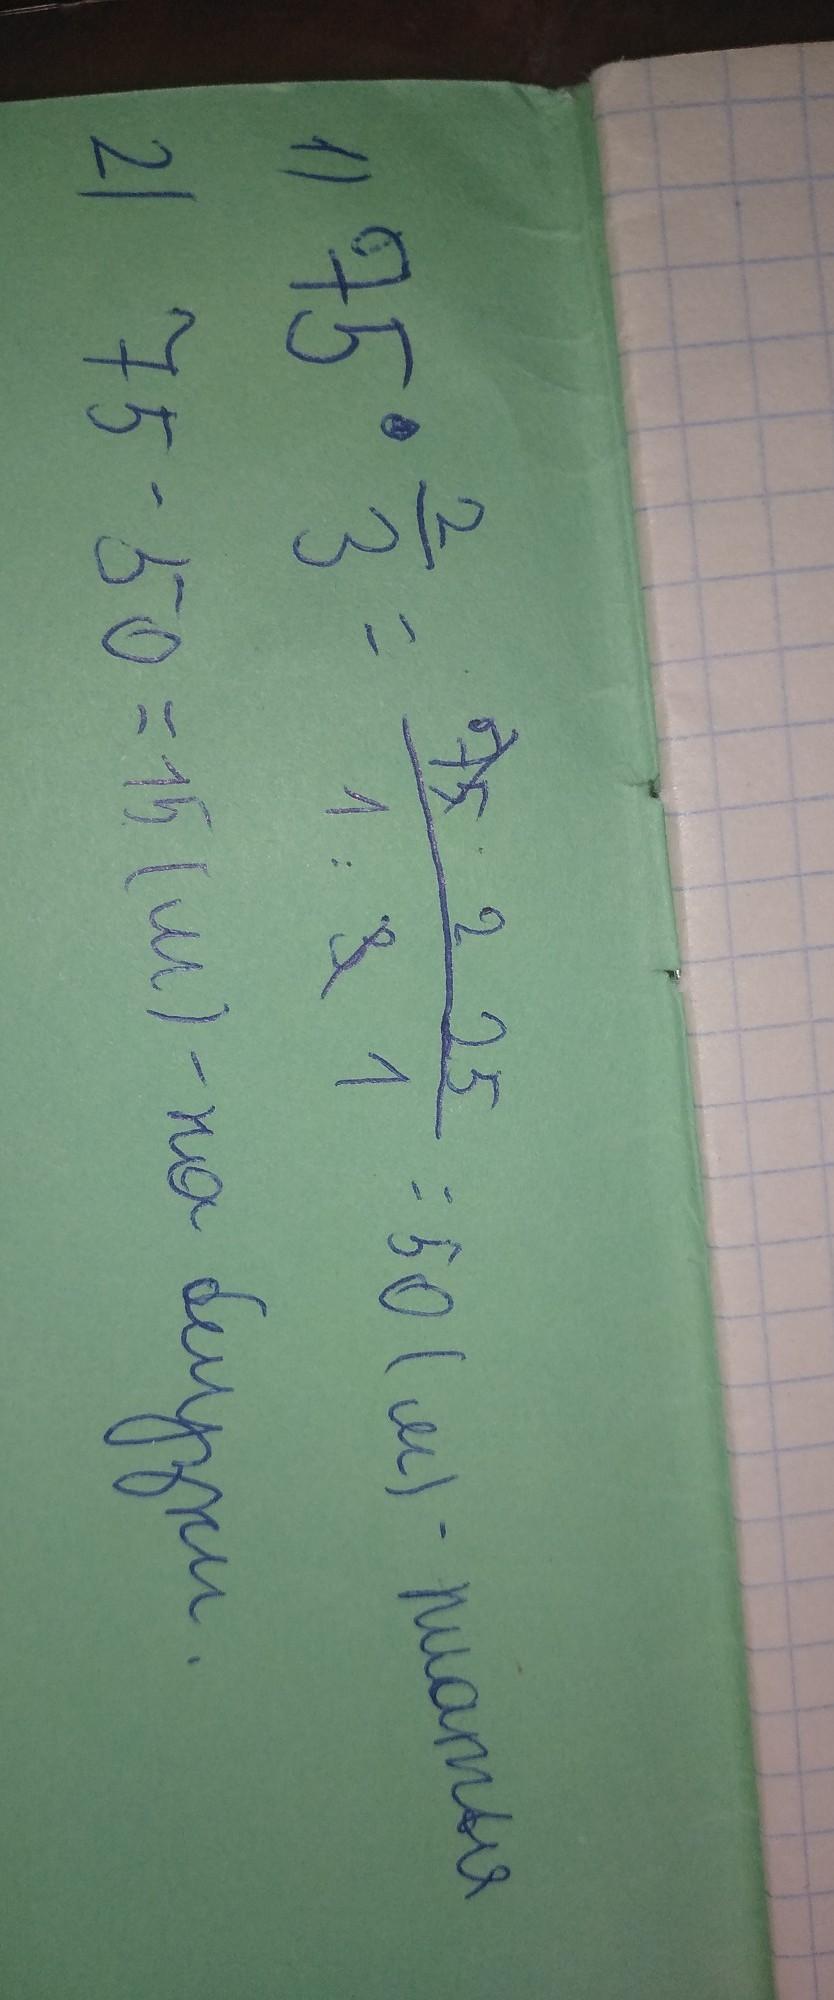 1) 75 • 2/3 = 75 · 2 25 / 1 · 3 1 = 50 (м) - платья
2) 75 - 50 = 15 (м) - на блузки.